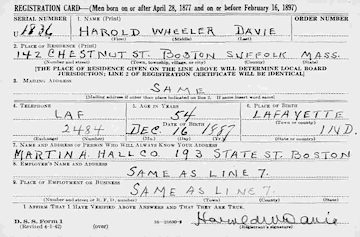 REGISTRATION CARD—(Men born on or after April 28, 1877 and on or before February 16, 1897)
SERIAL NUMBER 1. NAME (Print) ORDER NUMBER
1836 HAROLD WHEELER DAVIE
(First) (Middle) (Last)
2. PLACE OF RESIDENCE (Print)
142 CHESTNUT ST. BOSTON SUFFOLK MASS.
(Number and street) (Town, township, village, or city) (County) (State)
[THE PLACE OF RESIDENCE GIVEN ON THE LINE ABOVE WILL DETERMINE LOCAL BOARD
JURISDICTION; LINE 2 OF REGISTRATION CERTIFICATE WILL BE IDENTICAL]
3. MAILING ADDRESS
SAME
[Mailing address if other than place indicated on line 2. If same insert word same]
4. TELEPHONE 5. AGE IN YEARS 6. PLACE OF BIRTH
LAF 54 LAFAYETTE
DATE OF BIRTH (Town or county)
2484 DEC. 16 1887 IND.
(Exchange) (Number) (Mo.) (Day) (Yr.) (State or country)
7. NAME AND ADDRESS OF PERSON WHO WILL ALWAYS KNOW YOUR ADDRESS
MARTIN A. HALL CO. 193 STATE ST. BOSTON
8. EMPLOYER'S NAME AND ADDRESS
SAME AS LINE 7.
9. PLACE OF EMPLOYMENT OR BUSINESS
SAME AS LINE 7.
(Number and street or R. F. D. number) (Town) (County) (State)
I AFFIRM THAT I HAVE VERIFIED ABOVE ANSWERS AND THAT THEY ARE TRUE.
D. S. S. Form 1
(Revised 4-1-42) (over)
Harold W Davie
(Registrant's signature)